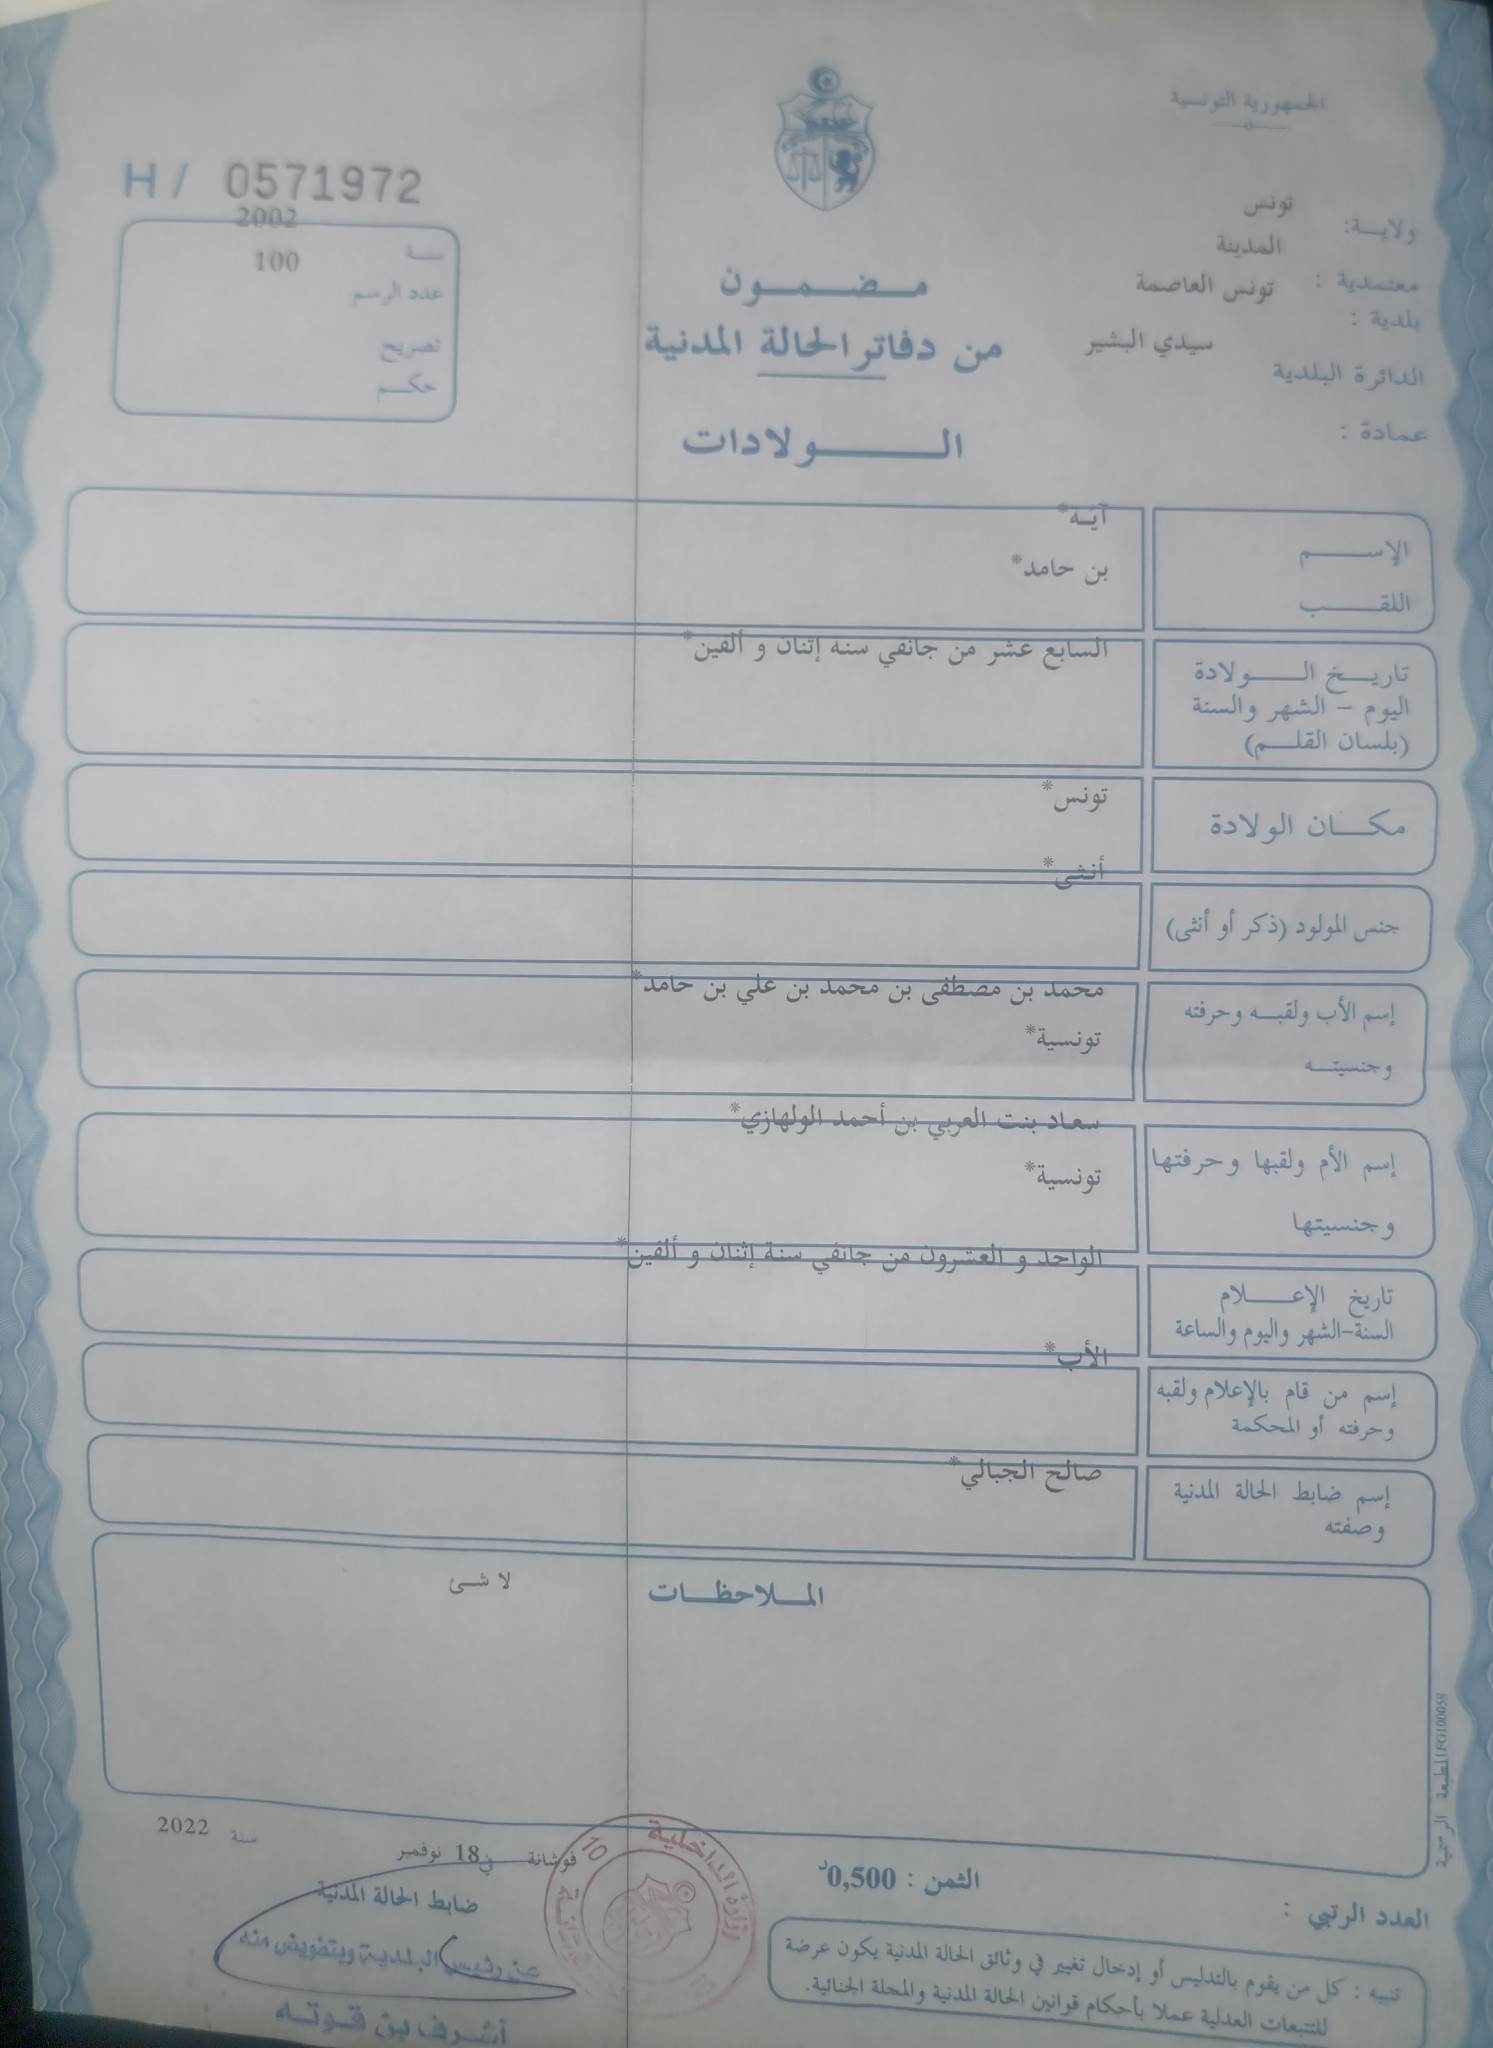 الجمهورية التونسية
H / 0571972
ولاية: تونس
معتمدية : المدينة
بلدية : تونس العاصمة
الدائرة البلدية سيدي البشير
عمادة :
سنة 2002
عدد الرسم 100
تصريح
حكم
مضمون
من دفاتر الحالة المدنية
الولادات
الإسم آية*
اللقب بن حامد*
تاريخ الولادة
اليوم - الشهر والسنة
(بلسان القلم)
السابع عشر من جانفي سنة إثنان و ألفين*
مكان الولادة تونس*
جنس المولود (ذكر أو أنثى) أنثى*
إسم الأب ولقبه وحرفته
وجنسيته
محمد بن مصطفى بن محمد بن علي بن حامد*
تونسية*
إسم الأم ولقبها وحرفتها
وجنسيتها
سعاد بنت العربي بن أحمد الولهازي*
تونسية*
تاريخ الإعلام
السنة-الشهر واليوم والساعة
الواحد و العشرون من جانفي سنة إثنان و ألفين*
إسم من قام بالإعلام ولقبه
وحرفته أو المحكمة
الأب*
إسم ضابط الحالة المدنية
وصفته
صالح الجبالي*
الملاحظات
لا شئ
المطبعة الرسمية IFG100058
فوشانة في 18 نوفمبر سنة 2022
ضابط الحالة المدنية
عن رئيس البلدية وبتفويض منه
أشرف بن قوته
وزارة الداخلية
10
الثمن : 0,500د
العدد الرتبي :
تنبيه : كل من يقوم بالتدليس أو إدخال تغيير في وثائق الحالة المدنية يكون عرضة
للتتبعات العدلية عملا بأحكام قوانين الحالة المدنية والمجلة الجنائية.